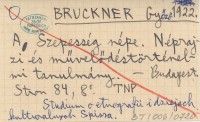 BRUCKNER Győző 1922.
A Szepesség népe. Néprajzi
és művelődéstörténelmi
tanulmány. — Budapest.
Stron 84, 8° TNP
Studium o etnografii i dziejach
kulturalnych Spisza.